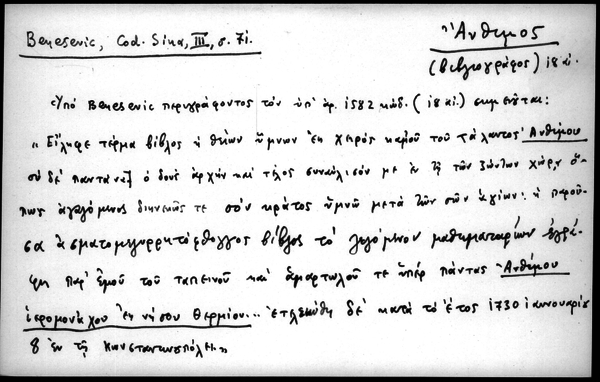 Benesevic, Cod. Sina, III, σ. 71.
Ἄνθιμος
(βιβλιογράφος) 18 αἰ.
Ὑπό Benesevic περιγράφοντος τόν ὑπ' ἀρ. 1582 κώδ. (18 αἰ.) σημειοῦται:
"Εἴληφε τέρμα βίβλος ἡ θείων ὕμνων ἐκ χειρός κἀμοῦ τοῦ τάλαντος Ἀνθίμου
σύ δέ παντάναξ ὁ δούς ἀρχήν καί τέλος συναύλισόν με ἐν τῇ τῶν ζώντων χώρᾳ ὅ-
πως ἀγαλόμενος διηνεκῶς τε σόν κράτος ὑμνῶ μετά τῶν σῶν ἁγίων: ἡ παροῦ-
σα ἀσματομελιρρητόφθογγος βίβλος τό λεγόμενον μαθηματάριον ἐγρά-
φη παρ' ἐμοῦ τοῦ ταπεινοῦ καί ἁμαρτωλοῦ τε ὑπέρ πάντας Ἀνθίμου
ἱερομονάχου ἐκ νήσου Θερμίου... ἐτελειώθη δέ κατά τό ἔτος 1730 ἰαννουαρίου
8 ἐν τῇ Κωνσταντινουπόλει"